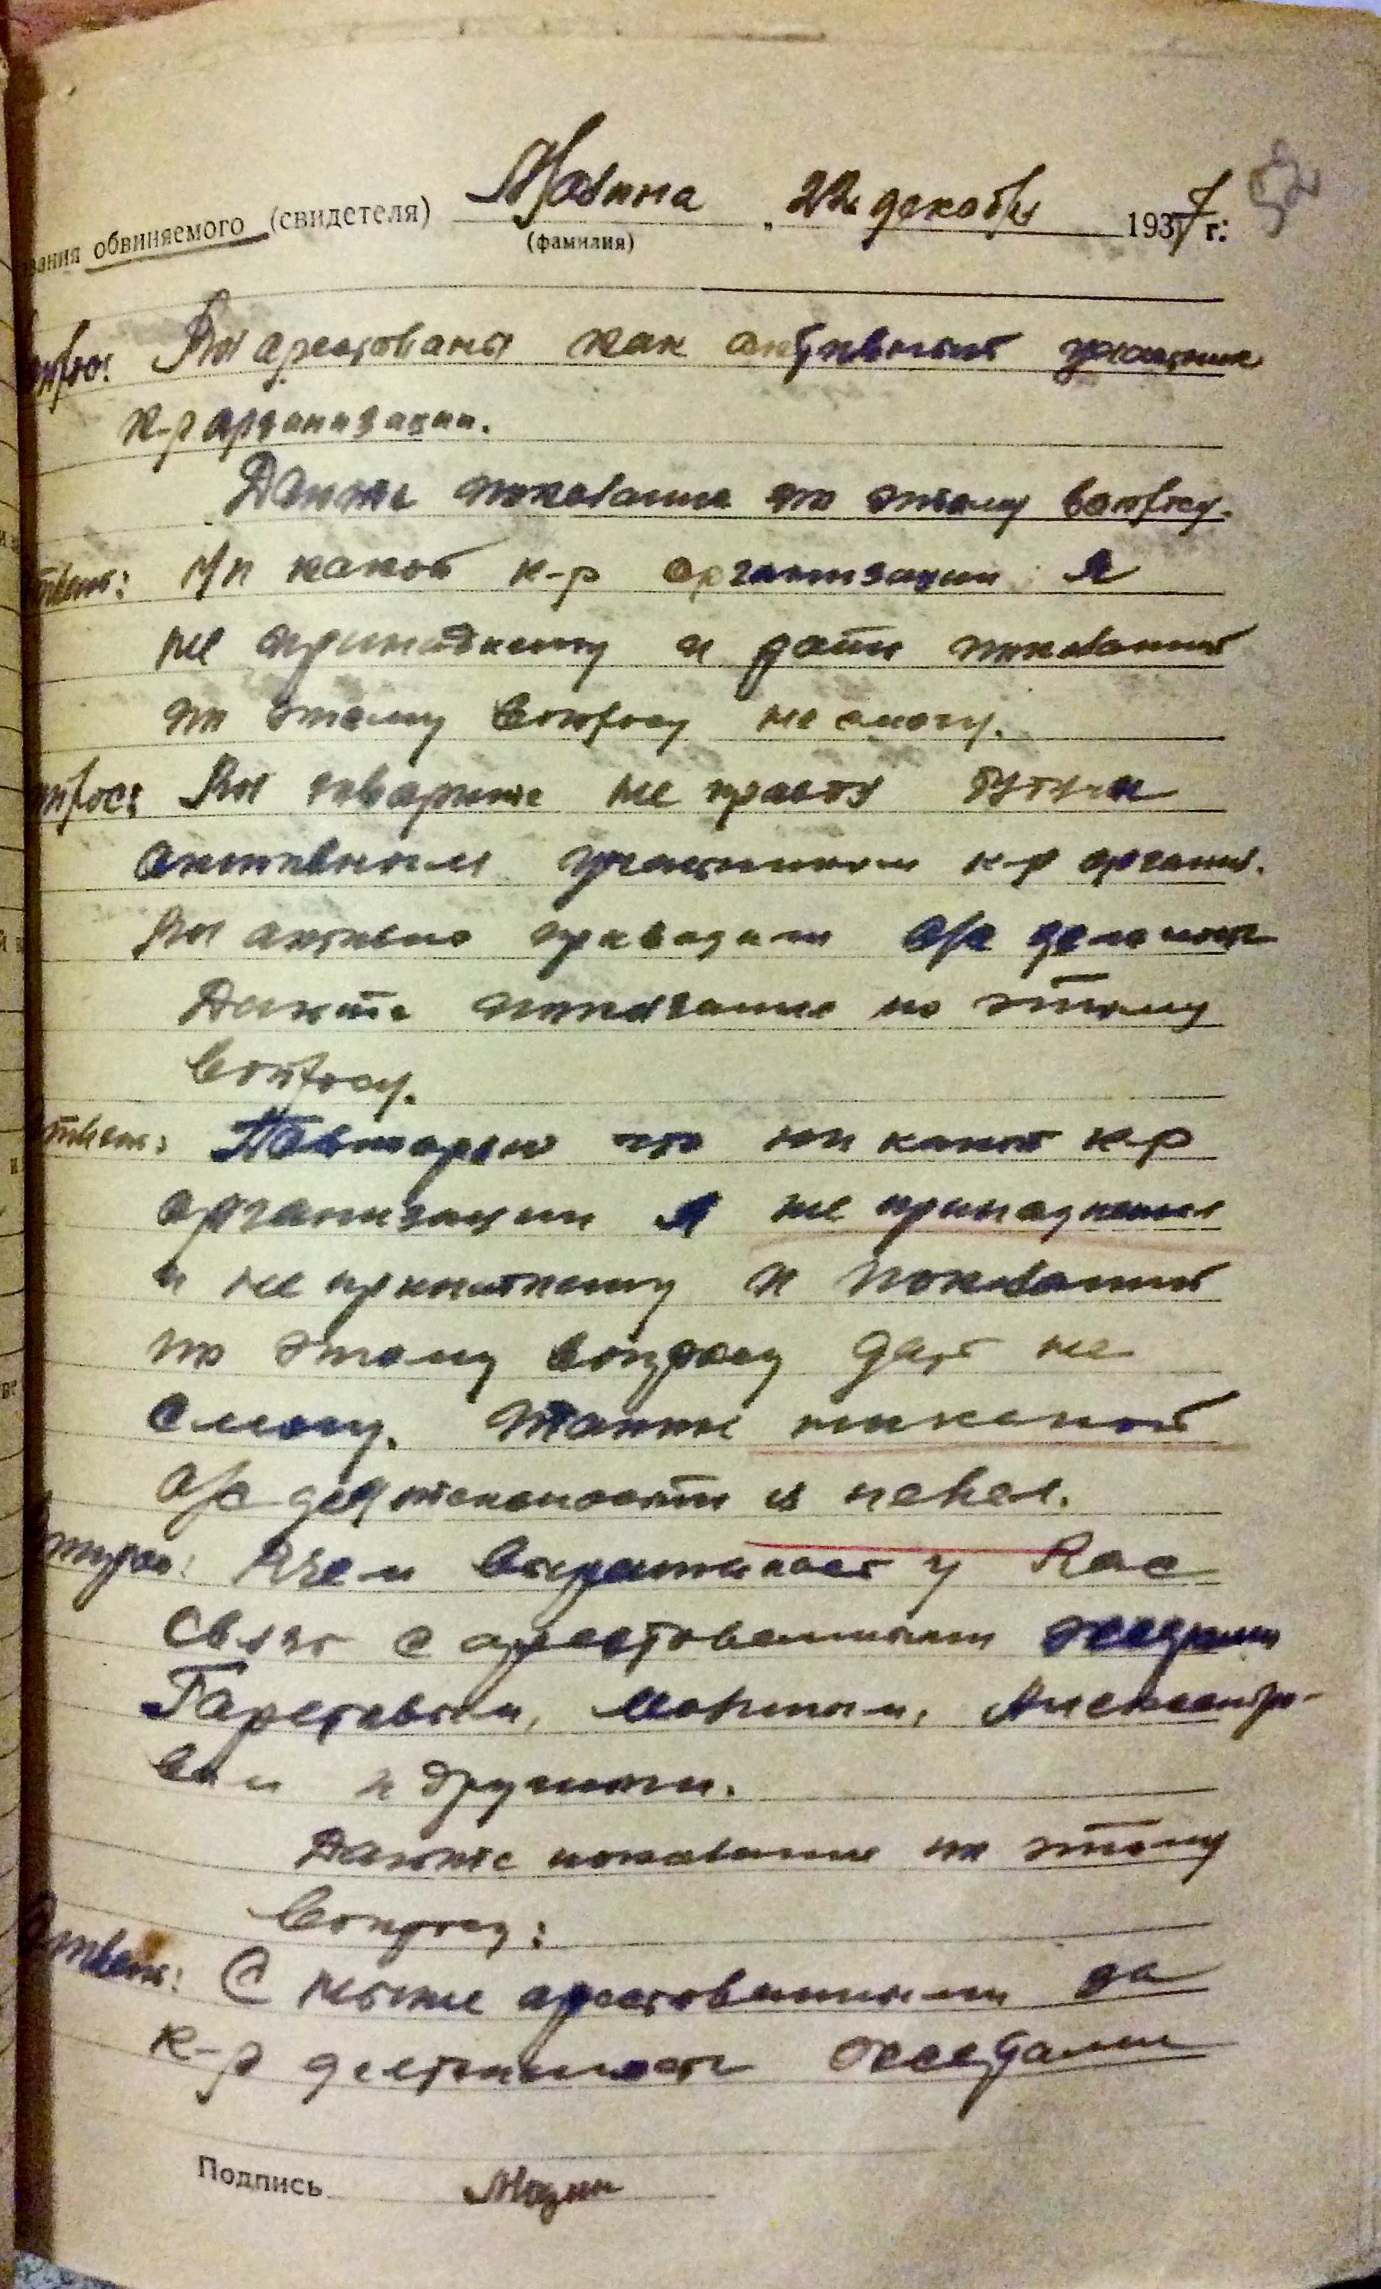 вания обвиняемого (свидетеля) Мазина „ 22 декабря 1937 г.
(фамилия)
Вопрос: Вы арестованы как активный участник
к-р организации.
Дайте показание по этому вопросу.
Ответ: Ни какой к-р организации я
не принадлежу и дать показаний
по этому вопросу не смогу.
Вопрос: Вы говорите не правту будучи
активным участником к-р органи.
Вы активно проводили а/с
Дайте показание по этому
вопросу.
Ответ: Повторяю что ни какой к-р
организации я не принадлежал
и не принатлежу и показаний
по этому вопросу дать не
смогу. Также никакой
а/с деятельности я не вел.
Вопрос: В чем выражалась у Вас
связь с арестованными
Александро-
вым и другими.
Дайте показание по этому
вопросу:
Ответ: С ниже арестованными за
к-р деятельность
Подпись Мазин